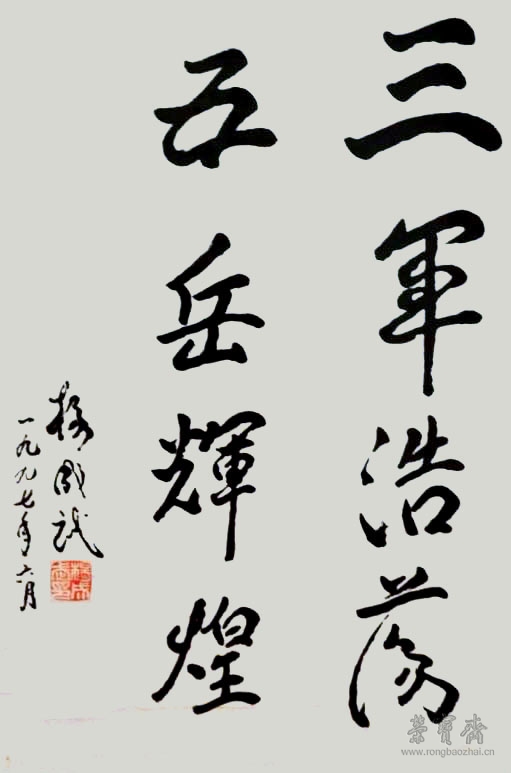 三军浩荡
五岳輝煌
杨成武
一九九七年六月
榮寳齋
www.rongbaozhai.cn